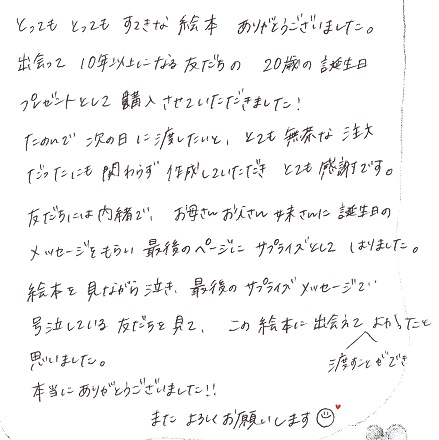 とっても とっても すてきな 絵本 ありがとうございました。
出会って 10年以上になる 友だちの 20歳の 誕生日
プレゼントとして 購入 させていただきました！
たのんで 次の日 に渡したいと、とても 無茶な 注文
だったにも 関わらず 作成していただき とても 感謝です。
友だちには 内緒で、お母さん お父さん 妹さんに 誕生日の
メッセージをもらい 最後のページに サプライズとして はりました。
絵本を 見ながら 泣き、最後の サプライズ メッセージで
号泣している 友だちを 見て、この 絵本に 出会えて よかったと
渡すことができ
思いました。
本当に ありがとうございました!!
また よろしくお願いします